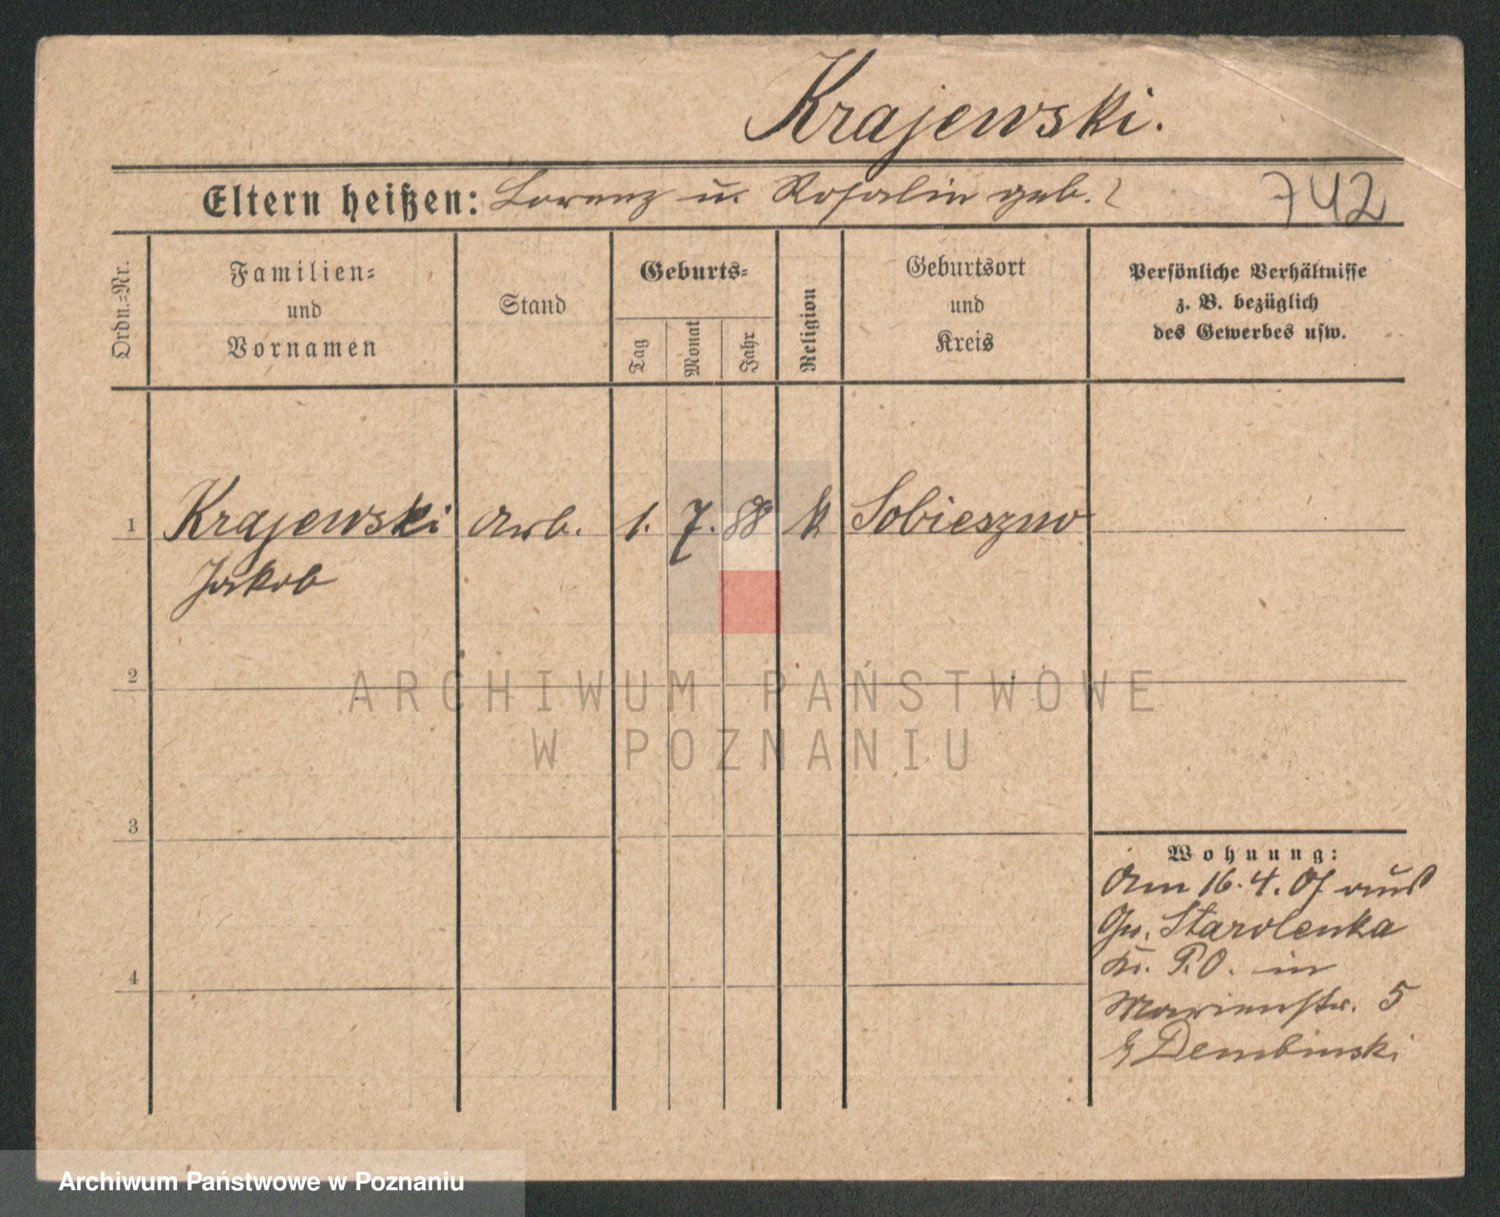 Krajewski.
Eltern heißen: Lorenz u. Rosalie geb. ?
742
Ordn.-Nr.
Familien-
und
Vornamen
Stand
Geburts-
Tag
Monat
Jahr
Religion
Geburtsort
und
Kreis
Persönliche Verhältnisse
z. B. bezüglich
des Gewerbes usw.
1 Krajewski Arb. 1. 7. 88 k Sobieszno
Jakob
2
3
4
Wohnung:
Am 16.4.07 aus
Gr. Starolenka
Kr. P.O. in
Marienstr. 5
b/ Dembinski
ARCHIWUM PAŃSTWOWE
W POZNANIU
Archiwum Państwowe w Poznaniu